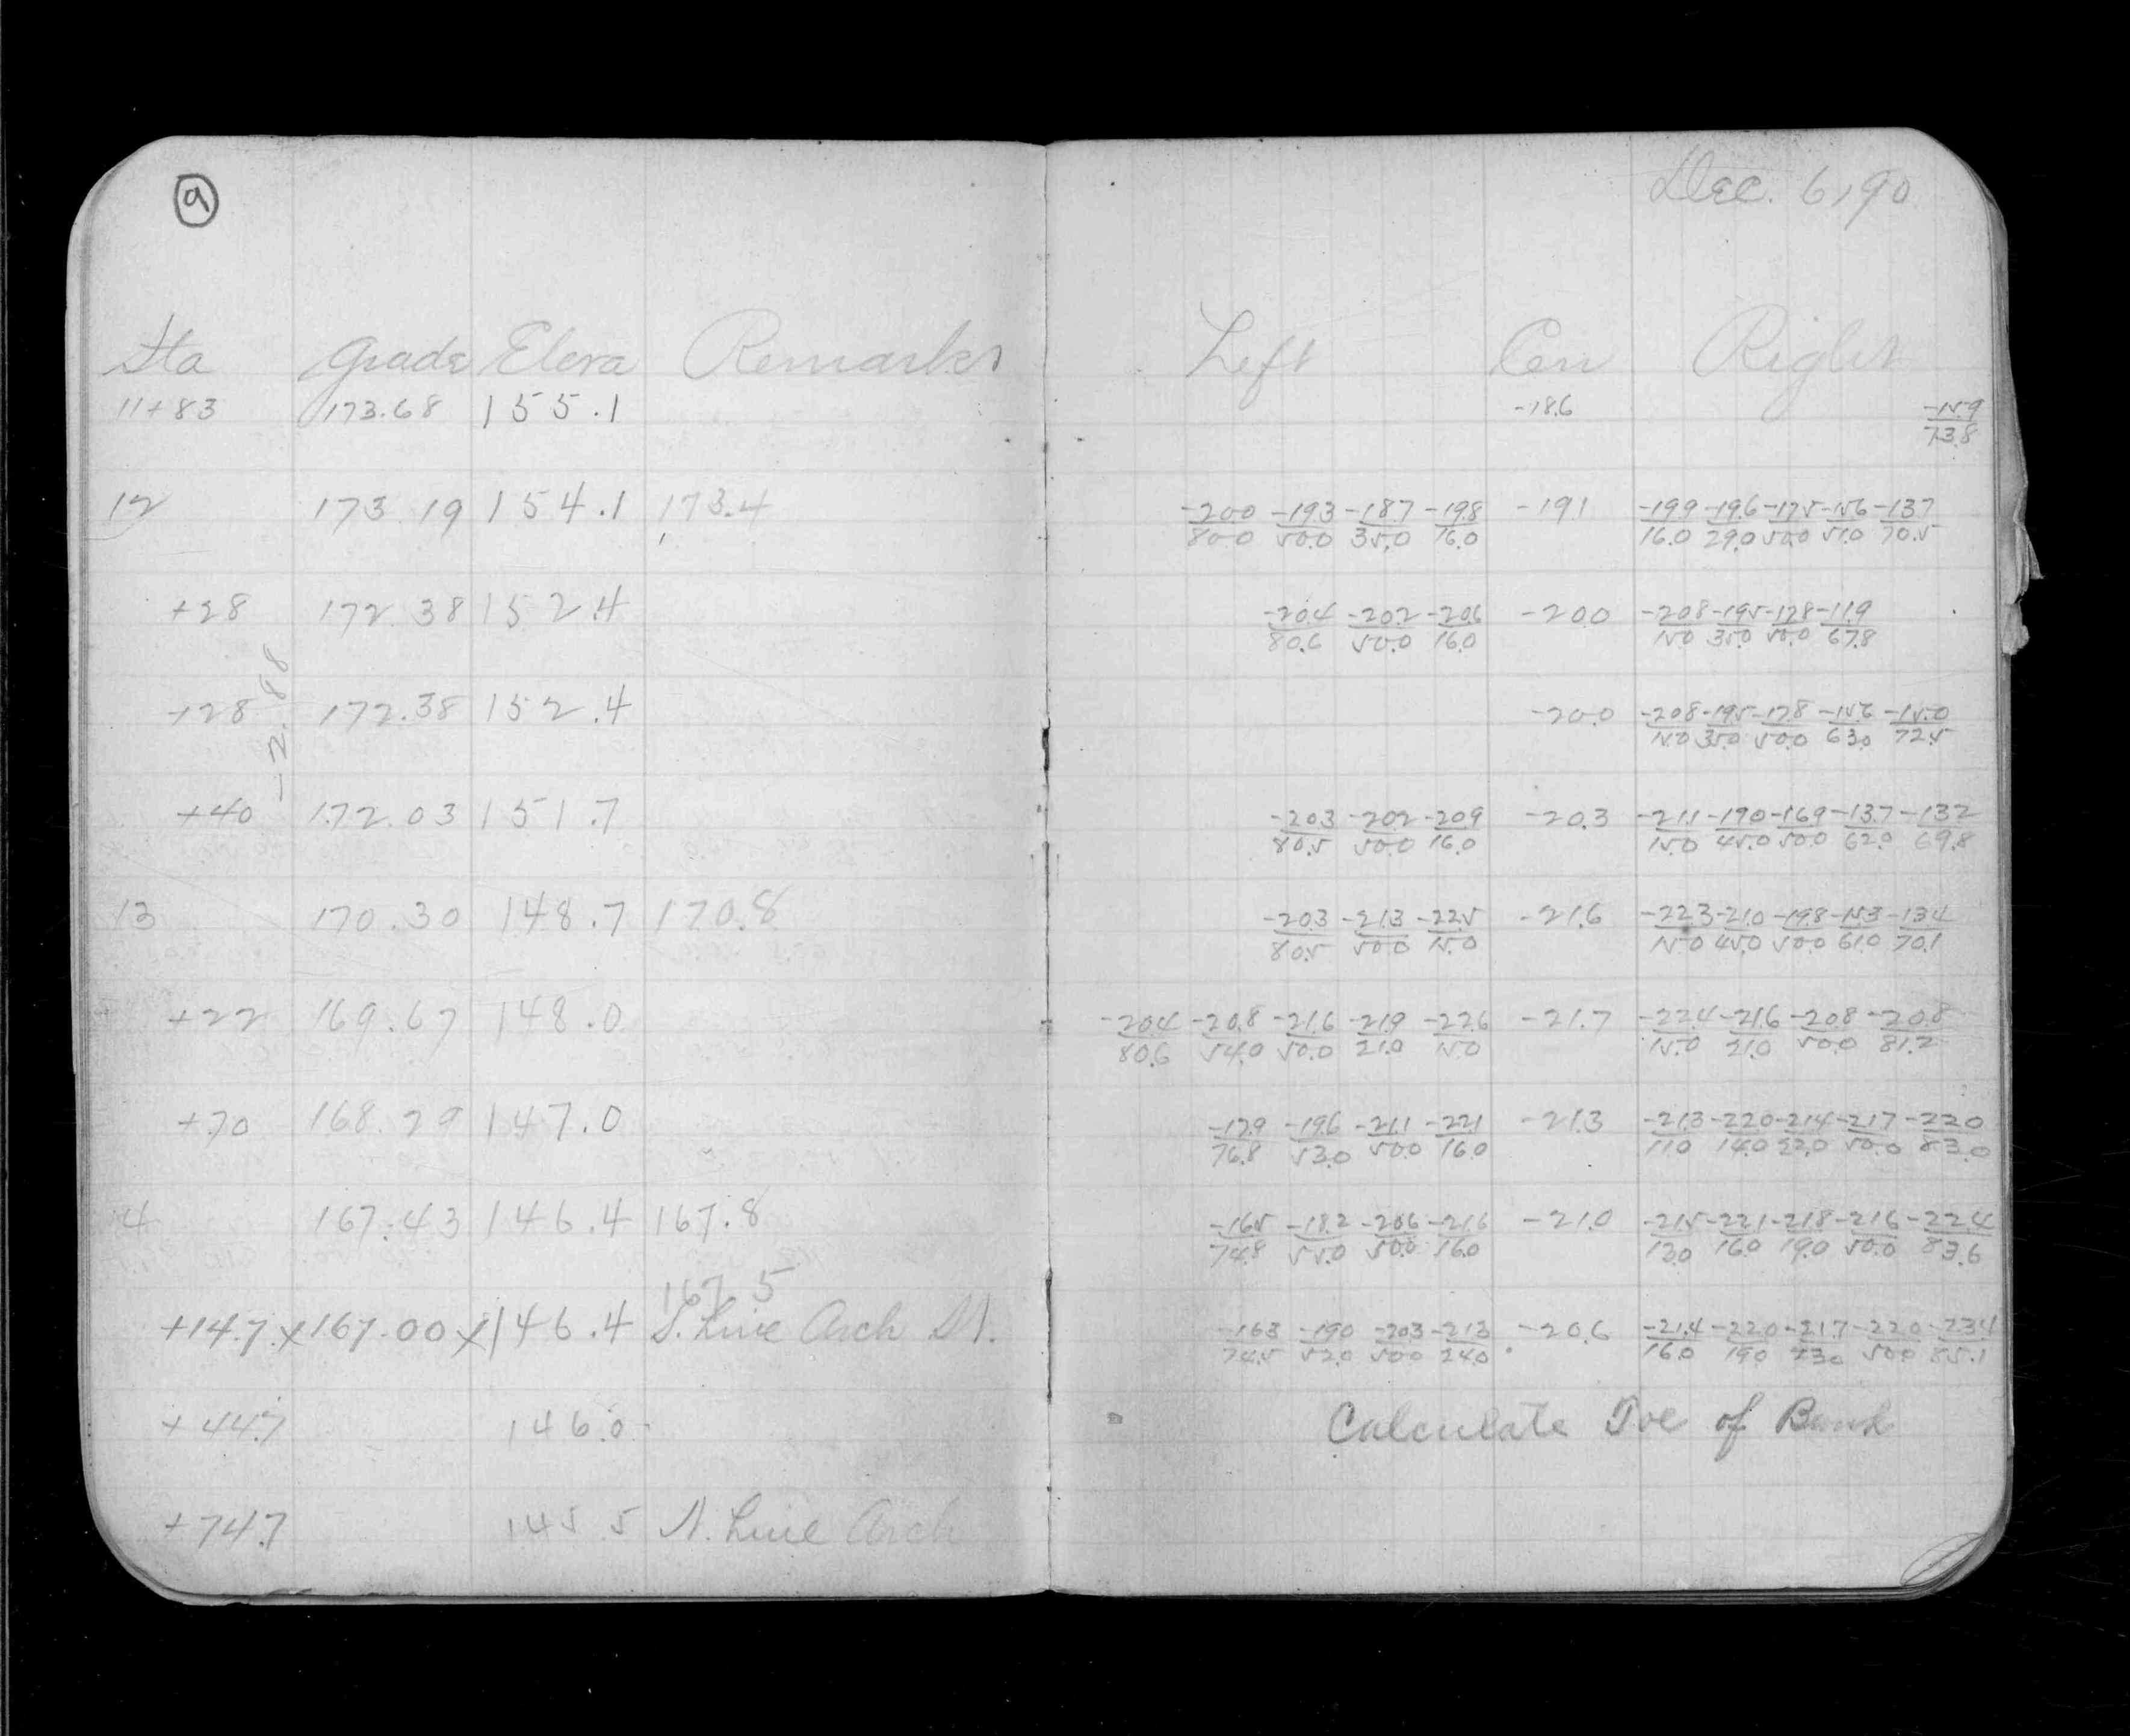 9
Dec. 6, 90
Sta Grade Eleva Remarks Left Cen Right
11+83 173.68 155.1 -18.6 -15.9
73.8
12 173.19 154.1 173.4 -20.0 -19.3 -18.7 -19.8 -19.1 -19.9 -19.6 -17.5 -15.6 -13.7
80.0 50.0 35.0 16.0 16.0 29.0 50.0 51.0 70.5
+28 172.38 152.4 -20.4 -20.2 -20.6 -20.0 -20.8 -19.5 -17.8 -11.9
80.6 50.0 16.0 15.0 35.0 50.0 67.8
-2.88
+28 172.38 152.4 -20.0 -20.8 -19.5 -17.8 -15.6 -15.0
15.0 35.0 50.0 63.0 72.5
+40 172.03 151.7 -20.3 -20.2 -20.9 -20.3 -21.1 -19.0 -16.9 -13.7 -13.2
80.5 50.0 16.0 15.0 45.0 50.0 62.0 69.8
13 170.30 148.7 170.8 -20.3 -21.3 -22.5 -21.6 -22.3 -21.0 -19.8 -15.3 -13.4
80.5 50.0 15.0 15.0 45.0 50.0 61.0 70.1
+22 169.67 148.0 -20.4 -20.8 -21.6 -21.9 -22.6 -21.7 -22.4 -21.6 -20.8 -20.8
80.6 54.0 50.0 21.0 15.0 15.0 21.0 50.0 81.2
+70 168.29 147.0 -17.9 -19.6 -21.1 -22.1 -21.3 -21.3 -22.0 -21.4 -21.7 -22.0
76.8 53.0 50.0 16.0 11.0 14.0 22.0 50.0 83.0
4 167.43 146.4 167.8 -16.5 -18.2 -20.6 -21.6 -21.0 -21.5 -22.1 -21.8 -21.6 -22.4
74.8 55.0 50.0 16.0 13.0 16.0 19.0 50.0 83.6
167.5
+14.7 x 167.00 x 146.4 S. Line Arch St. -16.3 -19.0 -20.3 -21.3 -20.6 -21.4 -22.0 -21.7 -22.0 -23.4
74.5 52.0 50.0 24.0 16.0 19.0 23.0 50.0 85.1
+44.7 146.0 Calculate Toe of Bank
+74.7 145.5 N. Line Arch